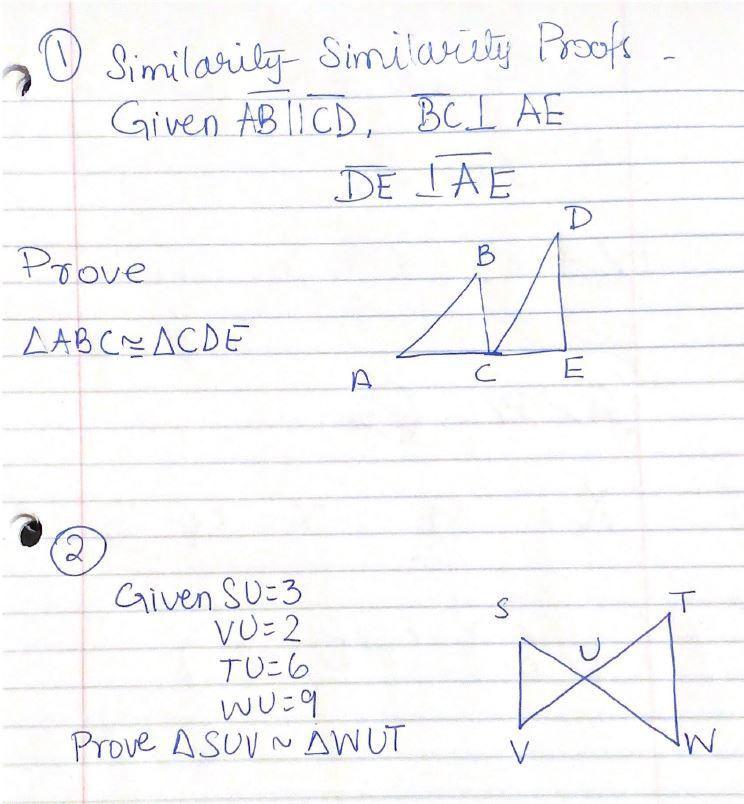 ① Similarity - Similariety Proofs -
Given AB || CD, BC ⊥ AE
DE ⊥ AE
Prove
△ABC ≅ △CDE
D
B
A
C
E
②
Given SU=3
VU=2
TU=6
WU=9
Prove △SUV ~ △WUT
S
T
U
V
W